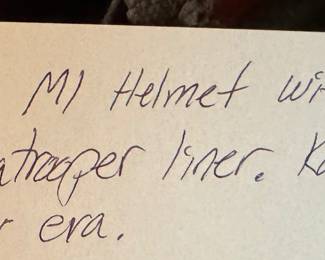 M1 Helmet wi
atrooper liner. Ko
r era.